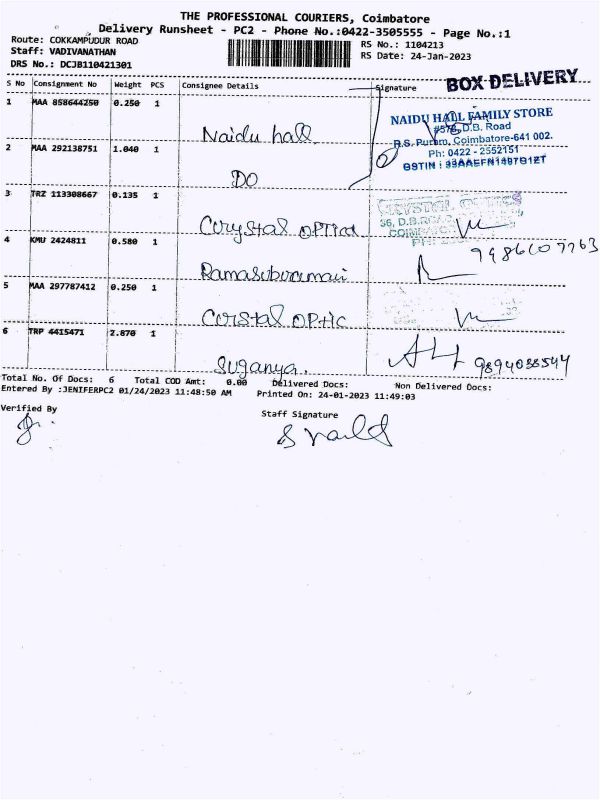 THE PROFESSIONAL COURIERS, Coimbatore
Delivery Runsheet - PC2 - Phone No.:0422-3505555 - Page No.:1
Route: COKKAMPUDUR ROAD
RS No.: 1104213
Staff: VADIVANATHAN
RS Date: 24-Jan-2023
DRS No.: DCJB110421301
BOX DELIVERY
S No Consignment No Weight PCS Consignee Details Signature
1 MAA 858644250 0.250 1
Naidu hall
NAIDU HALL FAMILY STORE
D.B. Road
R.S. Puram, Coimbatore-641 002.
Ph: 0422 - 2552151
GSTIN : 33AAEFN1497G1ZT
2 MAA 292138751 1.040 1
DO
3 TRZ 113308667 0.135 1
Crystal OPTical
CRYSTAL OPTICS
56, D.B.ROAD
4 KMU 2424811 0.580 1
Ramasubramani
5 MAA 297787412 0.250 1
Coristal OPTic
6 TRP 4415471 2.870 1
Suganya.
9894088544
Total No. Of Docs: 6 Total COD Amt: 0.00 Delivered Docs: Non Delivered Docs:
Entered By :JENIFERPC2 01/24/2023 11:48:50 AM Printed On: 24-01-2023 11:49:03
Verified By
Staff Signature